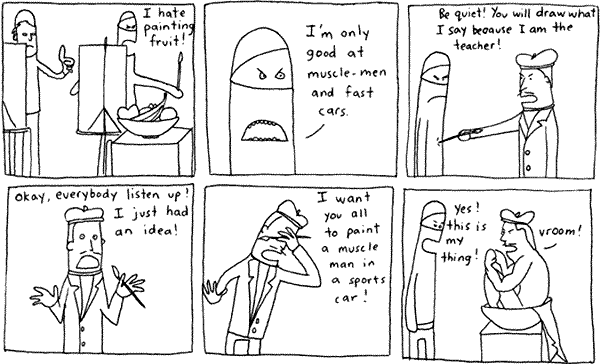 I hate
painting
fruit!
I'm only
good at
muscle-men
and fast
cars.
Be quiet! You will draw what
I say because I am the
teacher!
Okay, everybody listen up!
I just had
an idea!
I want
you all
to paint
a muscle
man in
a sports
car!
Yes!
this is
my
thing!
vroom!